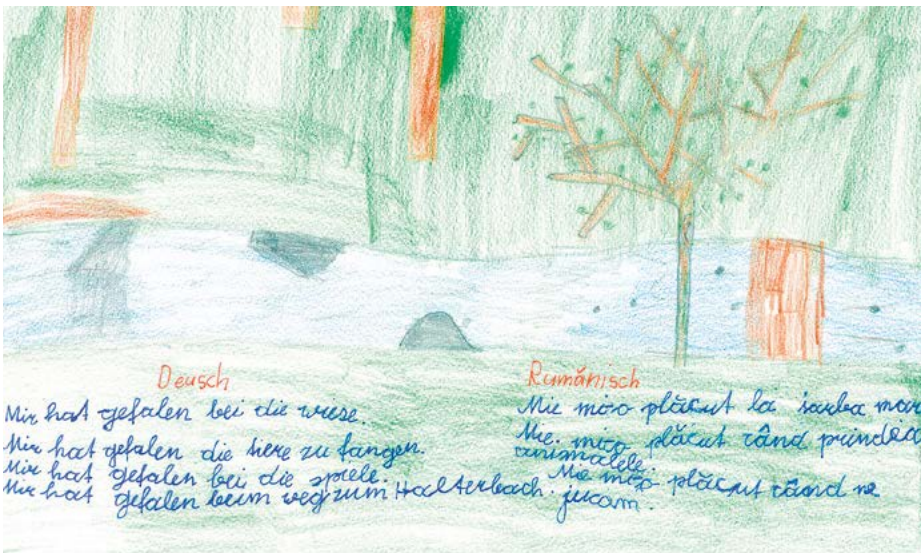 Deusch
Mir hat gefalen bei die wiese.
Mir hat gefalen die tiere zu fangen.
Mir hat gefalen bei die spiele.
Mir hat gefalen beim weg zum Halterbach.
Rumänisch
Mie mi-o plăcut la iarba mar
Mie mi-o plăcut când prindea
animalele.
Mie mi-o plăcut când ne
jucam.